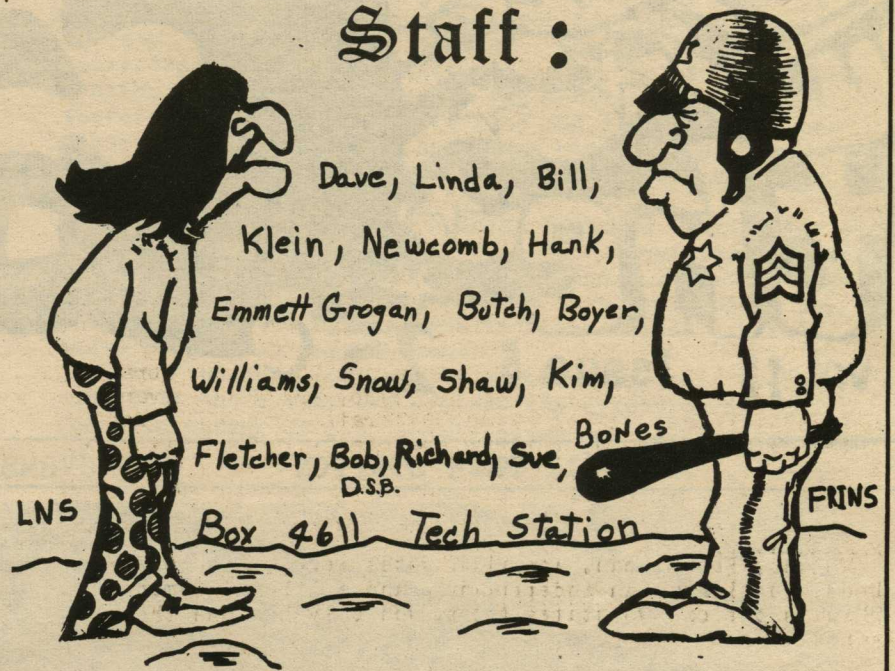 Staff :
Dave, Linda, Bill,
Klein, Newcomb, Hank,
Emmett Grogan, Butch, Boyer,
Williams, Snow, Shaw, Kim,
Fletcher, Bob, Richard, Sue, Bones
D.S.B.
LNS
FRINS
Box 4611 Tech Station